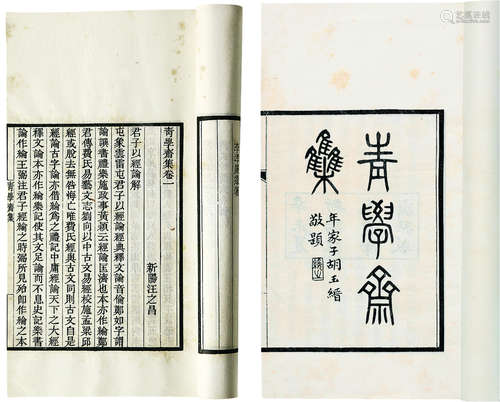 青學齋集卷一
新陽汪之昌
君子以經論解
屯象雲雷屯君子以經論經典釋文論音倫鄭如字謂
論譔書禮樂施政事黃穎云經論匡濟也本亦作綸鄭
君傳費氏易藝文志劉向以中古文易經校施孟梁邱
經或脫去無咎悔亡唯費氏經與古文同則古文自是
經論古字論亦借綸為之禮記中庸經論天下之大經
釋文論本亦作綸樂記使其文足論而不息史記樂書
論作綸王弼注君子經綸之時弼所見殆卽作綸之本
青學齋集
青學齋
集
年家子胡玉縉
敬題